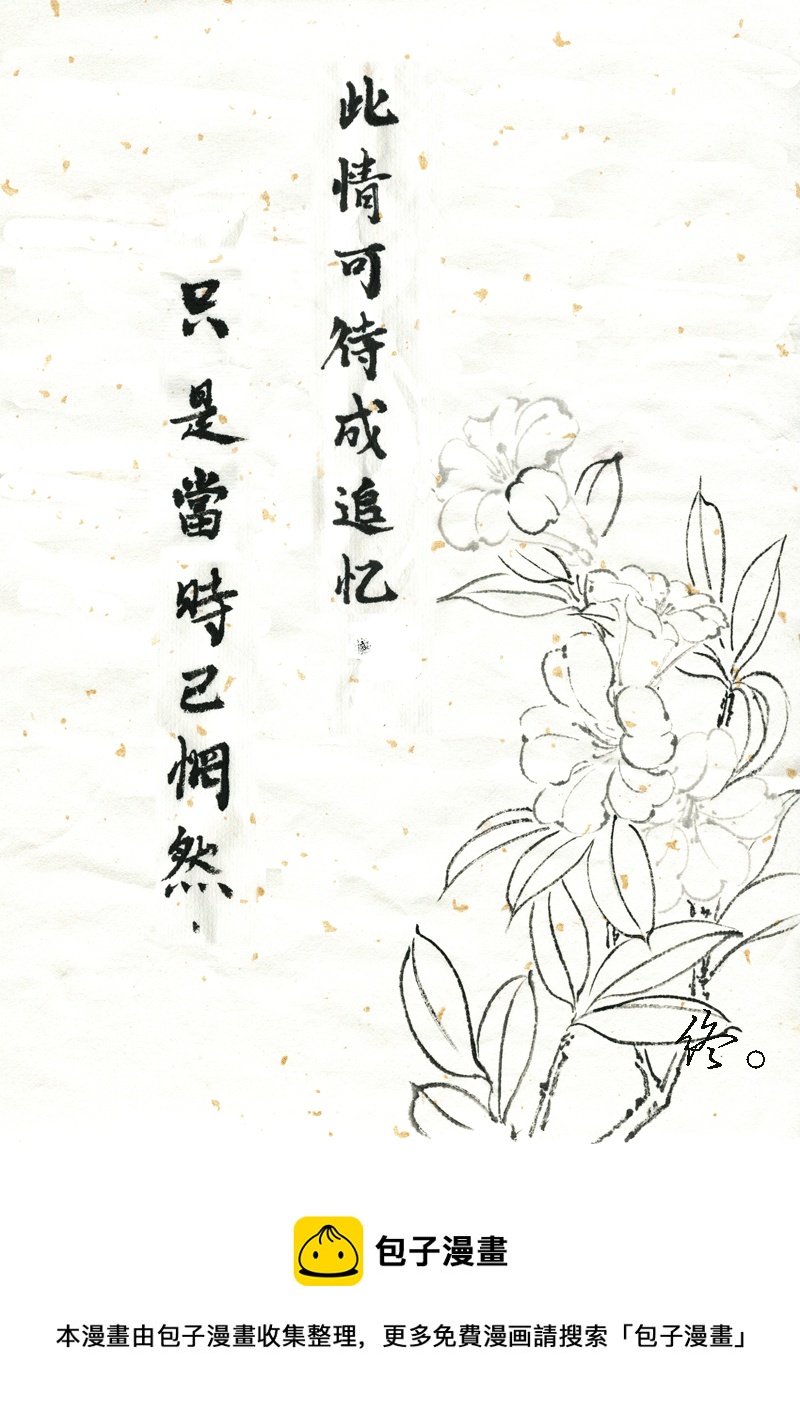 此情可待成追忆
只是當時已惘然
终。
包子漫畫
本漫畫由包子漫畫收集整理，更多免費漫画請搜索「包子漫畫」